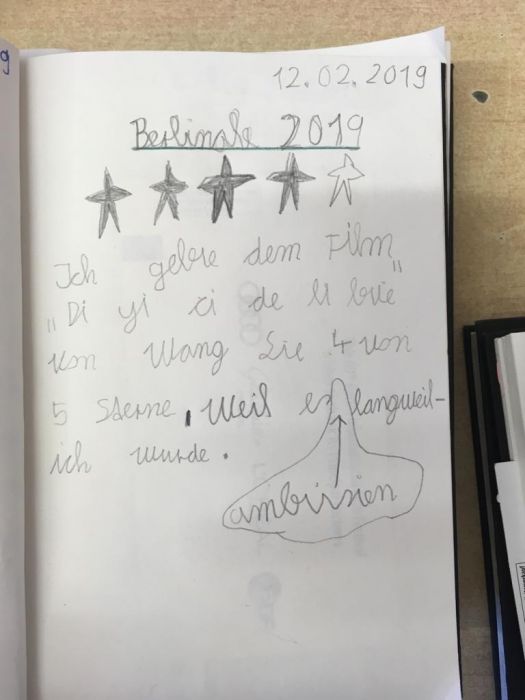 12.02.2019
Berlinale 2019
Ich gebe dem Film
„Di yi ci de li bie"
von Wang Lie 4 von
5 Sterne, weil es langweil-
ich wurde.